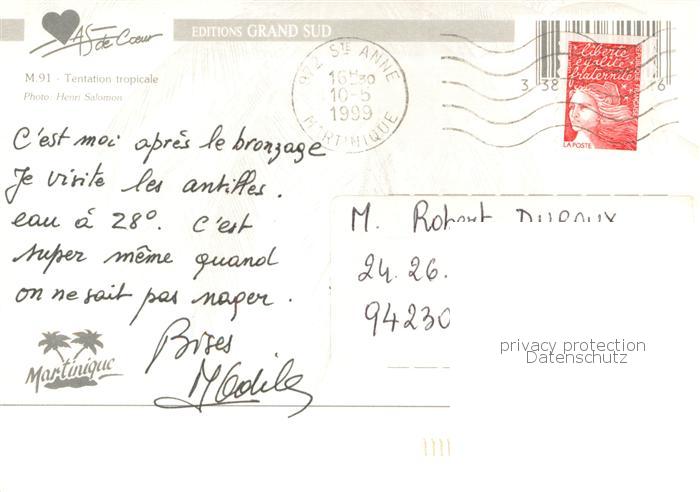 As de Cœur
EDITIONS GRAND SUD
M.91 - Tentation tropicale
Photo: Henri Salomon
972 STE ANNE
16H30
10-5
1999
MARTINIQUE
liberté
égalité
fraternité
LA POSTE
3 38 6
C'est moi après le bronzage
Je visite les antilles.
eau à 28°. C'est
super même quand
on ne sait pas nager.
Bises
M. Robert
24.26.
94230
Martinique
privacy protection
Datenschutz